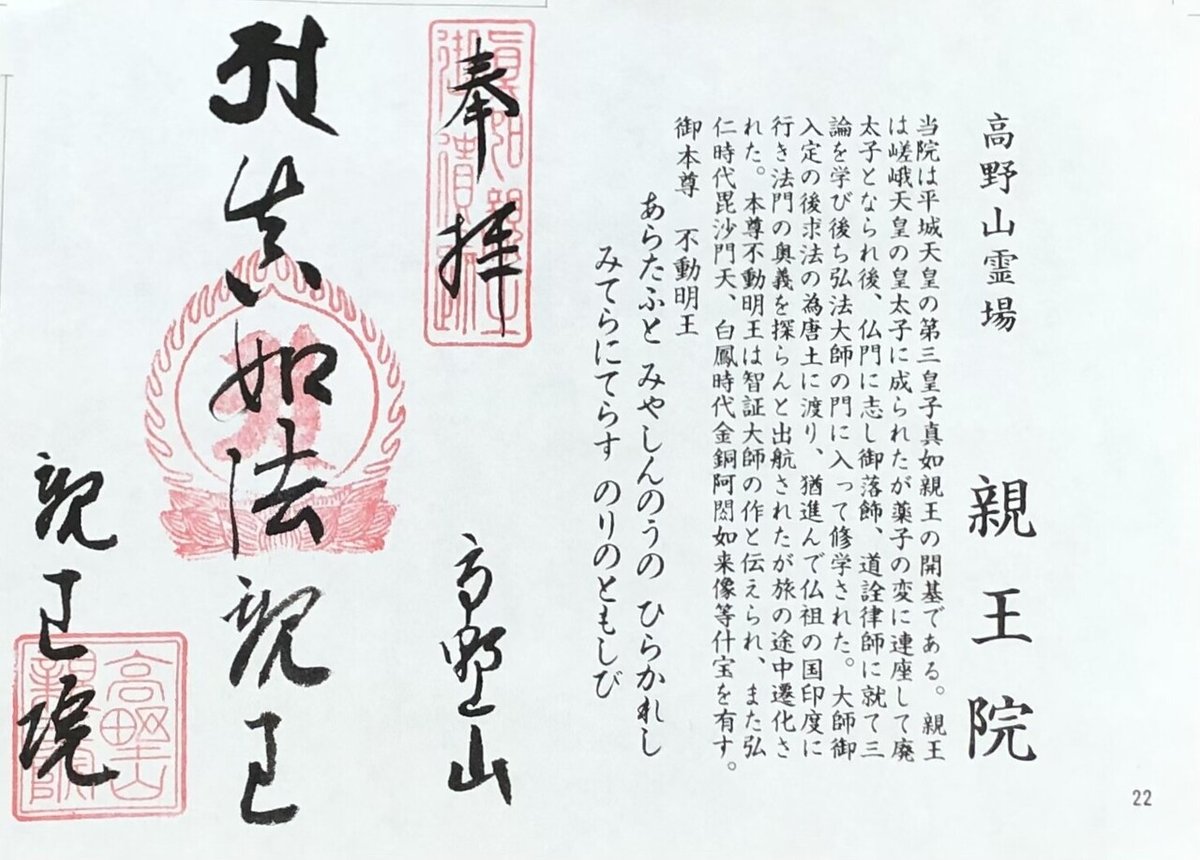 高野山霊場　親王院
当院は平城天皇の第三皇子真如親王の開基である。親王
は嵯峨天皇の皇太子に成られたが薬子の変に連座して廃
太子となられ後、仏門に志し御落飾、道詮律師に就て三
論を学び後ち弘法大師の門に入って修学された。大師御
入定の後求法の為唐土に渡り、猶進んで仏祖の国印度に
行き法門の奥義を探らんと出航されたが旅の途中遷化さ
れた。本尊不動明王は智証大師の作と伝えられ、また弘
仁時代毘沙門天、白鳳時代金銅阿閦如来像等什宝を有す。
御本尊　不動明王
あらたふと みやしんのうの ひらかれし
みてらにてらす のりのともしび
22
奉拝
高野山
真如法親王
親王院
高野山
親王院